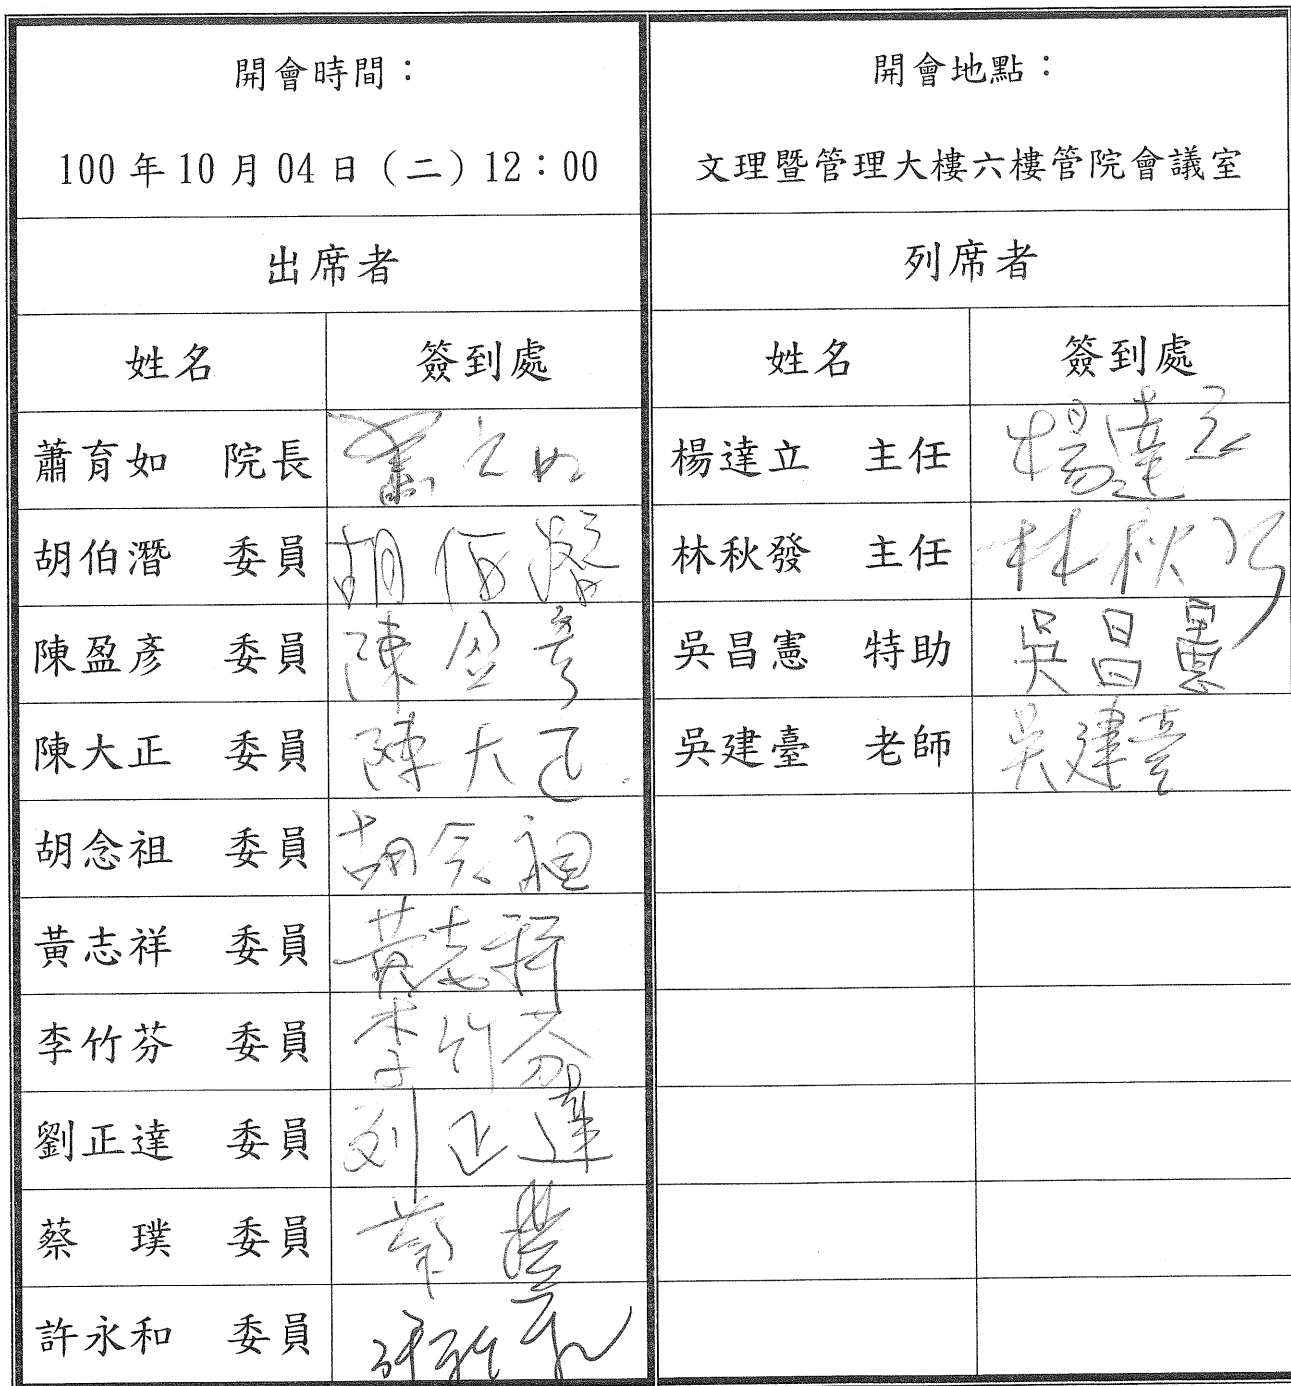 開會時間：
100 年 10 月 04 日（二）12：00
開會地點：
文理暨管理大樓六樓管院會議室
出席者
列席者
姓名 簽到處 姓名 簽到處
蕭育如 院長 楊達立 主任 楊達立
胡伯潛 委員 胡伯潛 林秋發 主任 林秋
陳盈彥 委員 陳盈彥 吳昌憲 特助 吳昌憲
陳大正 委員 陳大正 吳建臺 老師 吳建臺
胡念祖 委員 胡念祖
黃志祥 委員 黃志祥
李竹芬 委員 李竹芬
劉正達 委員 刘正達
蔡 璞 委員 蔡璞
許永和 委員